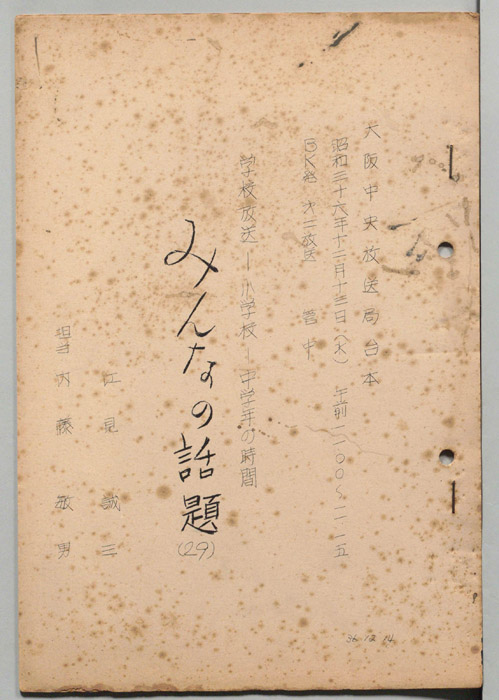 大阪中央放送局台本
昭和三十六年十二月十四日(木) 午前一一〇〇〜一一一五
BK発 第二放送 管中
学校放送ー小学校ー中学年の時間
みんなの話題
(29)
江見誠三
担当 内藤敏男
36.12.14